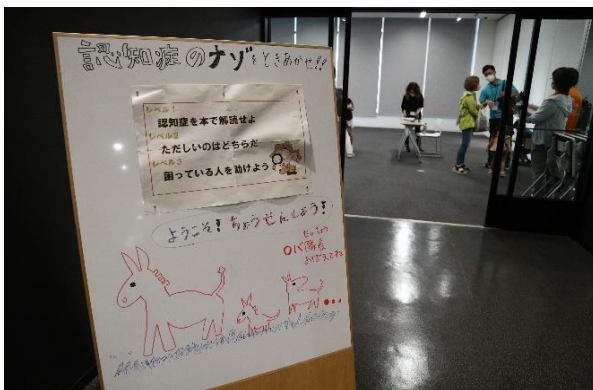 認知症のナゾをときあかせ!!
レベル1
認知症を本で解読せよ
レベル2
ただしいのはどちらだ
レベル3
困っている人を助けよう
ようこそ!ちょうせんしよう!
ロバ隊長
おぼえてね